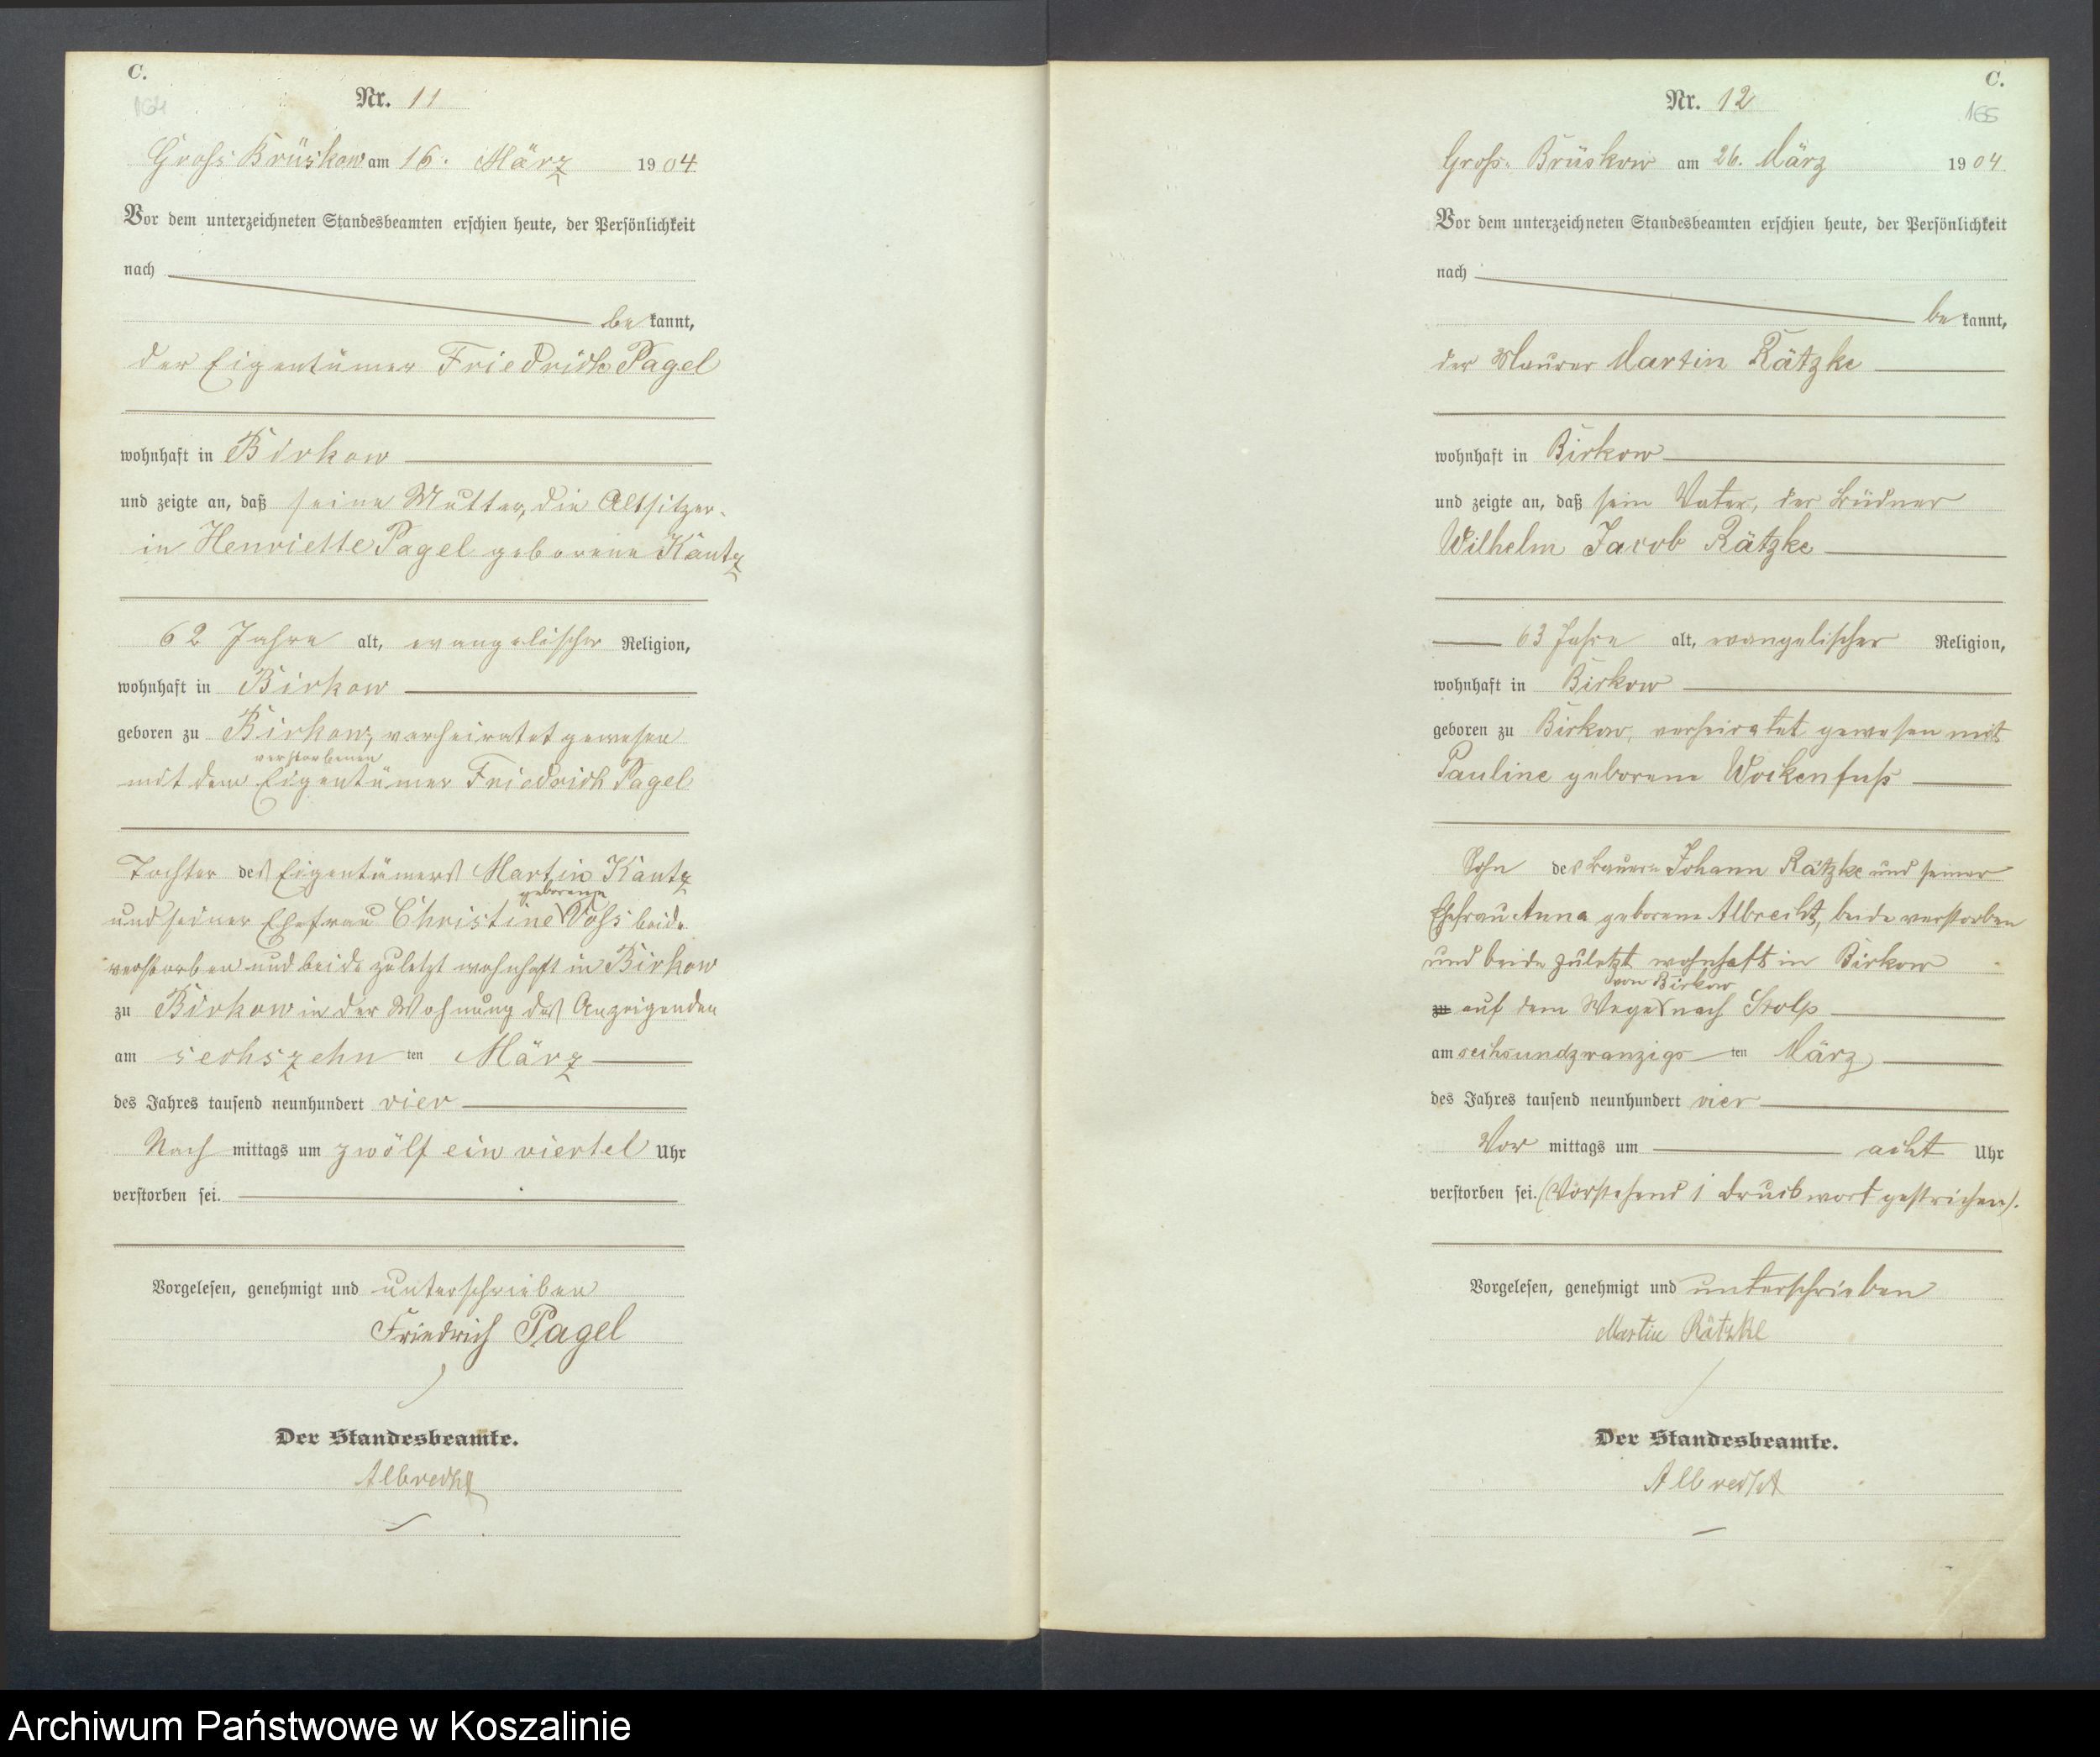 C.
164
Nr. 11
Gross Brüskow am 16. März 1904
Vor dem unterzeichneten Standesbeamten erschien heute, der Persönlichkeit
nach
be kannt,
der Eigentümer Friedrich Pagel
wohnhaft in Birkow
und zeigte an, daß seine Mutter, die Altsitzer-
in Henriette Pagel geborene Kautz
62 Jahre alt, evangelischer Religion,
wohnhaft in Birkow
geboren zu Birkow, verheiratet gewesen
verstorbenen
mit dem Eigentümer Friedrich Pagel
Tochter des Eigentümers Martin Kautz
geborene
und seiner Ehefrau Christine Voss beide
verstorben und beide zuletzt wohnhaft in Birkow
zu Birkow in der Wohnung des Anzeigenden
am sechszehn ten März
des Jahres tausend neunhundert vier
Nach mittags um zwölf ein viertel Uhr
verstorben sei.
Vorgelesen, genehmigt und unterschrieben
Friedrich Pagel
Der Standesbeamte.
Albrecht
C.
165
Nr. 12
Gross-Brüskow am 26. März 1904
Vor dem unterzeichneten Standesbeamten erschien heute, der Persönlichkeit
nach
be kannt,
der Maurer Martin Rätzke
wohnhaft in Birkow
und zeigte an, daß sein Vater, der Büdner
Wilhelm Jacob Rätzke
63 Jahre alt, evangelischer Religion,
wohnhaft in Birkow
geboren zu Birkow, verheiratet gewesen mit
Pauline geborene Wockenfuß
Sohn des Bauern Johann Rätzke und seiner
Ehefrau Anna geborene Albrecht, beide verstorben
und beide zuletzt wohnhaft in Birkow
von Birkow
zu auf dem Wege nach Stolp
am sechsundzwanzigs ten März
des Jahres tausend neunhundert vier
Vor mittags um acht Uhr
verstorben sei. (Vorstehend 1 Druckwort gestrichen).
Vorgelesen, genehmigt und unterschrieben
Martin Rätzke
Der Standesbeamte.
Albrecht
Archiwum Państwowe w Koszalinie